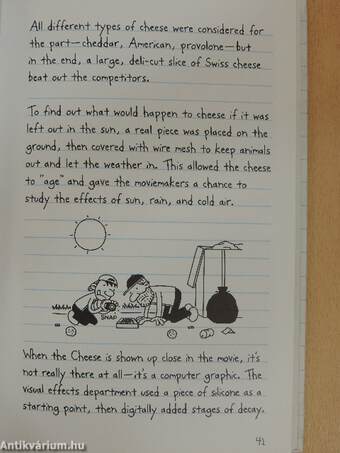 All different types of cheese were considered for
the part—cheddar, American, provolone—but
in the end, a large, deli-cut slice of Swiss cheese
beat out the competitors.
To find out what would happen to cheese if it was
left out in the sun, a real piece was placed on the
ground, then covered with wire mesh to keep animals
out and let the weather in. This allowed the cheese
to "age" and gave the moviemakers a chance to
study the effects of sun, rain, and cold air.
SNAP
When the Cheese is shown up close in the movie, it's
not really there at all—it's a computer graphic. The
visual effects department used a piece of silicone as a
starting point, then digitally added stages of decay.
41
Antikvárium.hu